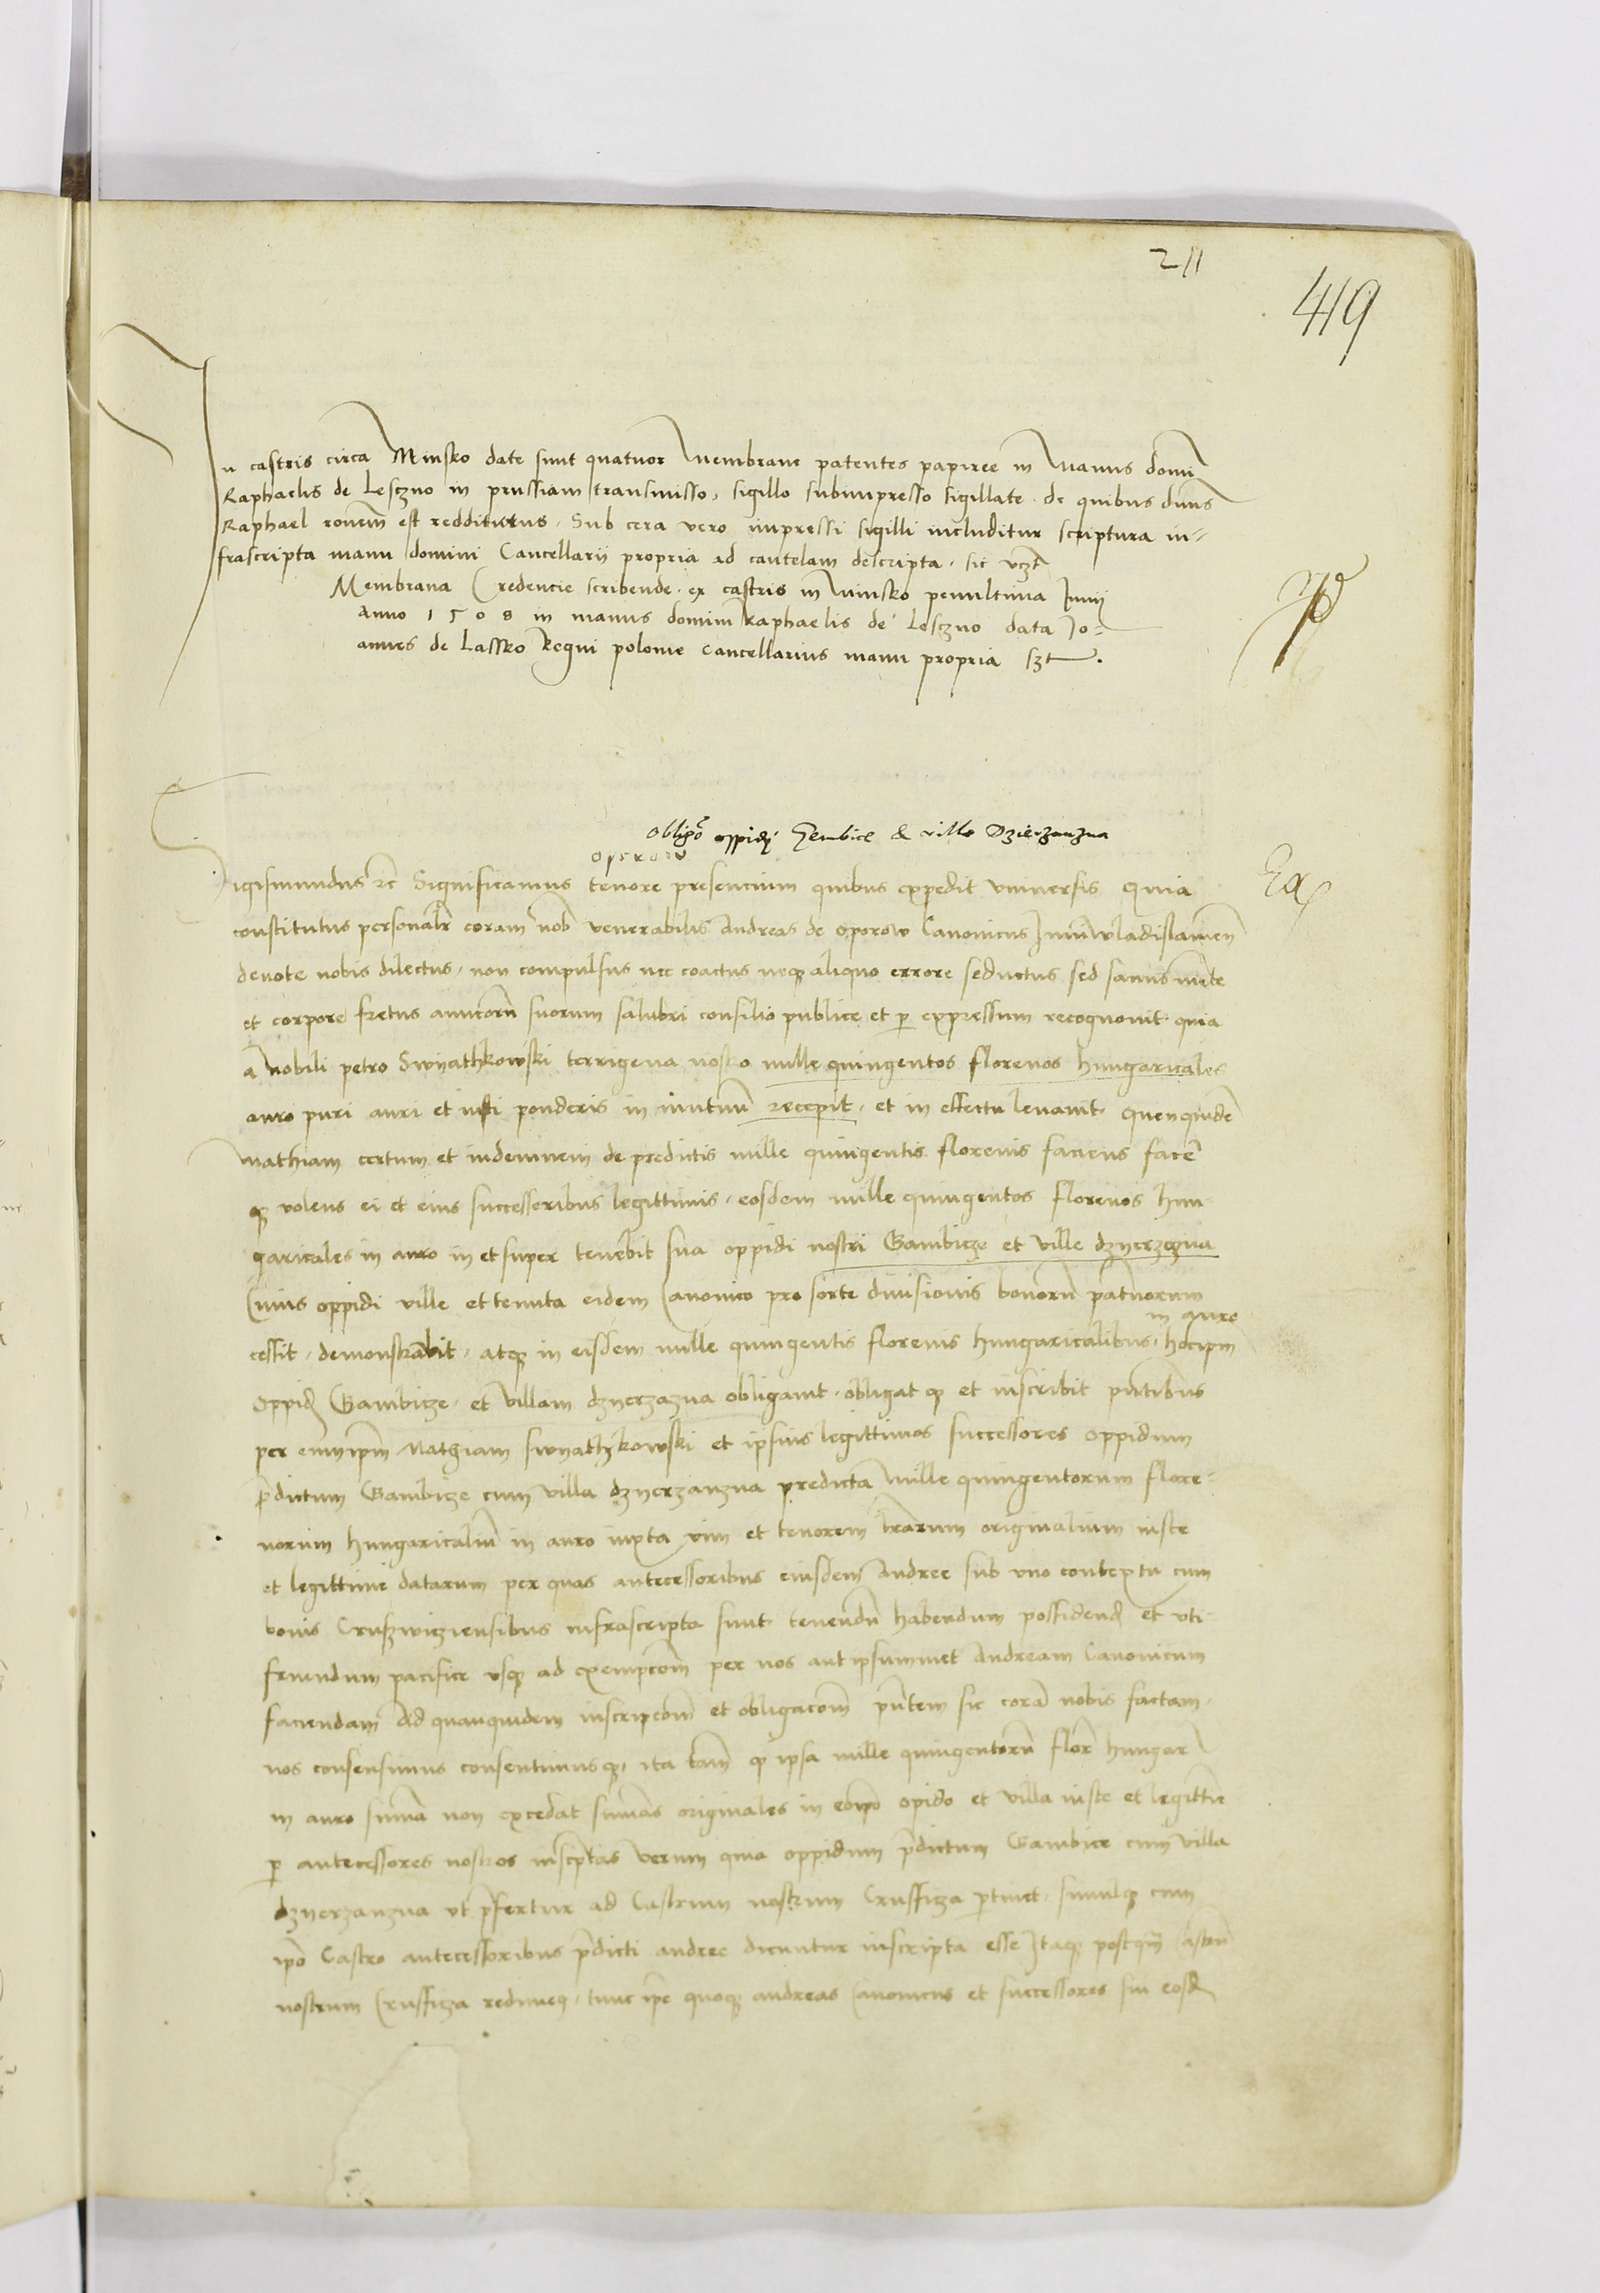 211
419
In castris circa Minsko date sunt quatuor Membrane patentes papiree in Manus domī
Raphaelis de Lesczno in prussiam transmisso, sigillo subimpresso sigillate. de quibus dnūs
Raphael roūem est redditurus. Sub cera vero impressi sigilli includitur scriptura in-
frascripta manu domini Cancellarii propria ad cautelam descripta. sic vcz̄t
Membrana Credencie scribende. ex castris in Minsko penultima Junij
Anno 1508 in manus domini Raphaelis de Lesczno data Jo-
annes de Lassko Regni polonie Cancellarius manu propria szt.
Obligō oppidj Gembice & ville Dzierzanzna
Oporow
Ex
Sigismundus ꝛc̄ Significamus tenore presencium quibus expedit vniuersis Quia
constitutus personalr̄ coram nob̄ venerabilis Andreas de Oporow Canonicus Juniwladislauien̄
deuote nobis dilectus, non compulsus nec coactus neqꝫ aliquo errore seductus sed sanus mente
et corpore fretus amicorū suorum salubri consilio publice et ꝑ expressum recognouit quia
a Nobili petro Swyathkowski terrigena nostro mille quingentos florenos hungaricales
auro puri auri et iusti ponderis in mutuū recepit, et in effectu leuauit. Quenquidē
Mathiam certum et indemnem de predictis mille quingentis florenis faciens facē
qꝫ volens ei et eius successoribus legittimis, eosdem mille quingentos florenos hun-
garicales in auro in et super tenebit sua oppidi nostri Gambicze et ville dzyerzezna
Cuius oppidi ville et tenuta eidem Canonico pro sorte diuisionis bonorū patruorum
in auro
cessit, demonstrabit, atqꝫ in eisdem mille quingentis florenis hungaricalibus, hoc ipm
Oppid̄ Gambicze, et villam dzyerzazna obligauit, obligat qꝫ et inscribit pn̄tibus
per eum ipm̄ Mathiam swyathkowski et ipsius legittimos successores oppidum
p̄dictum Gambicze cum villa dzyerzanzna predicta Mille quingentorum flore-
norum hungaricaliū in auro iuxta vim et tenorem lrārum originalium iuste
et legittime datarum per quas antecessoribus eiusdem Andree sub vno contextu cum
bonis Cruszwiciensibus infrascripta sunt tenendū habendum possidend̄ et vti
fruendum pacifice vsqꝫ ad exempcōm per nos aut ipsummet Andream Canonicum
faciendam Ad quamquidem inscripcōm et obligacōm pn̄tem sic corā nobis factam,
nos consensimus consentimusqꝫ, ita tam̄ qꝫ ipsa mille quingentorū flor̄ hungar̄
in auro sum̄a non excedat sum̄as originales in eoīpo opido et villa iuste et legittie
ꝑ antecessores nostros inscp̄tas verum quia oppidum p̄dictum Gambice cum villa
dzyerzanzna vt p̄fertur ad Castrum nostrum Crussfiza ꝑtinet, simulqꝫ cum
ipō Castro antecessoribus p̄dicti andree dicuntur inscripta esse Itaqꝫ postqm̄ Castrū
nostrum Crussfiza redimeꝫ, tunc ip̄e quoqꝫ andreas Canonicus et successores sui eosd̄